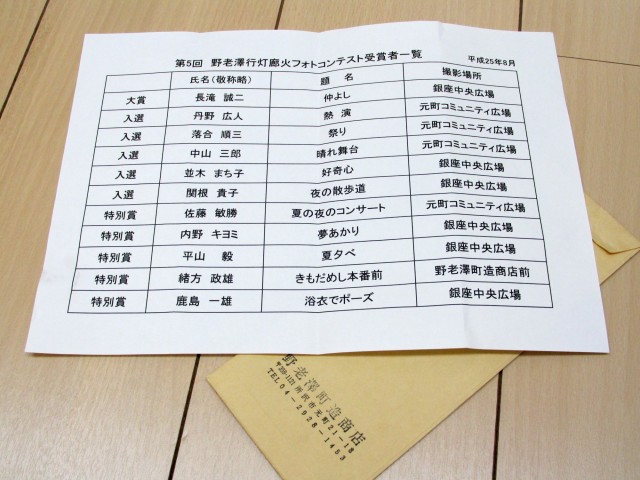 第5回 野老澤行灯廊火フォトコンテスト受賞者一覧 平成25年8月
氏名(敬称略) 題 名 撮影場所
大賞 長滝 誠二 仲よし 銀座中央広場
入選 丹野 広人 熱 演 元町コミュニティ広場
入選 落合 順三 祭り 元町コミュニティ広場
入選 中山 三郎 晴れ舞台 元町コミュニティ広場
入選 並木 まち子 好奇心 銀座中央広場
入選 関根 貴子 夜の散歩道 銀座中央広場
特別賞 佐藤 敏勝 夏の夜のコンサート 元町コミュニティ広場
特別賞 内野 キヨミ 夢あかり 銀座中央広場
特別賞 平山 毅 夏夕べ 銀座中央広場
特別賞 緒方 政雄 きもだめし本番前 野老澤町造商店前
特別賞 鹿島 一雄 浴衣でポーズ 銀座中央広場
野老澤町造商店
〒359-1121 所沢市元町21-18
TEL 04-2928-1453